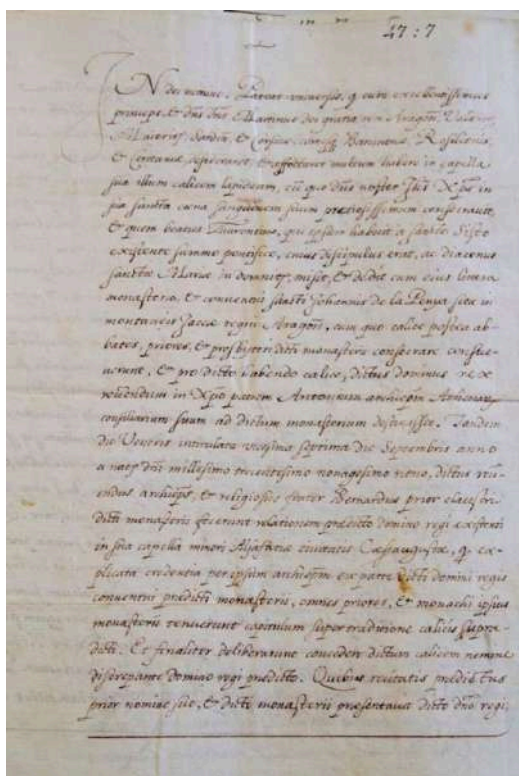 47 : 7
IN dei nomine. Pateat universis, q cum excellentissimus
princeps, & dns dns Martinus dei gratia rex Aragon, Valenciæ,
Maioric, Sardin, & Corsicæ, comesq Barcinonæ, Rosilionis,
& Ceritaniæ, desideraret & affectaret multum habere in capella
sua illum calicem lapideum, cū quo Dns noster Jhs Xps in
sua sancta cœna sanguinem suum pretiosissimum consecravit,
& quem beatus Laurentius, qui ipsum habuit a sancto Sixto
existente summo pontifice, cuius discipulus erat, ac diaconus
sanctæ Mariæ in dominica, misit, & dedit cum eius litera
monasterio, & conventui sancti Johannis de la Penya sito in
montaneis Jaccæ regni Aragon, cum quo calice postea ab-
bates, priores, & presbyteri dicti monasterii consecrare consue-
verunt, & pro dicto habendo calice, dictus dominus rex
reverendum in Xpo patrem Antonium archiepm
consiliarium suum ad dictum monasterium destinasset. Tandem
die Veneris intitulata vicesima sexptima die Septembris anno
a natt Dni millesimo trecentesimo nonagesimo nono, dictus reve-
rendus archieps, & religiosus frater Bernardus prior claustri
dicti monasterii fecerunt relationem prædicto domino regi existenti
in sua capella minori Aljafariæ civitatis Cæsaraugustæ, q ex-
plicata credentia per ipsum archiepm ex parte dicti domini regis
conventui prædicti monasterii, omnes priores, & monachi ipsius
monasterii tenuerunt capitulum super traditione calicis supra-
dicti. Et finaliter deliberarunt concedere dictum calicem nemine
discrepante domino regi prædicto. Quibus recitatis prædictus
prior nomine suo, & dicti monasterii præsentavit dicto dno regi,